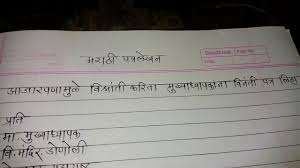 मराठी पत्रलेखन
आजारपणामुळे विश्रांती करिता मुख्याध्यापकांना विनंती पत्र लिहा
प्रति
मा. मुख्याध्यापक
वि. मंदिर डोणोली